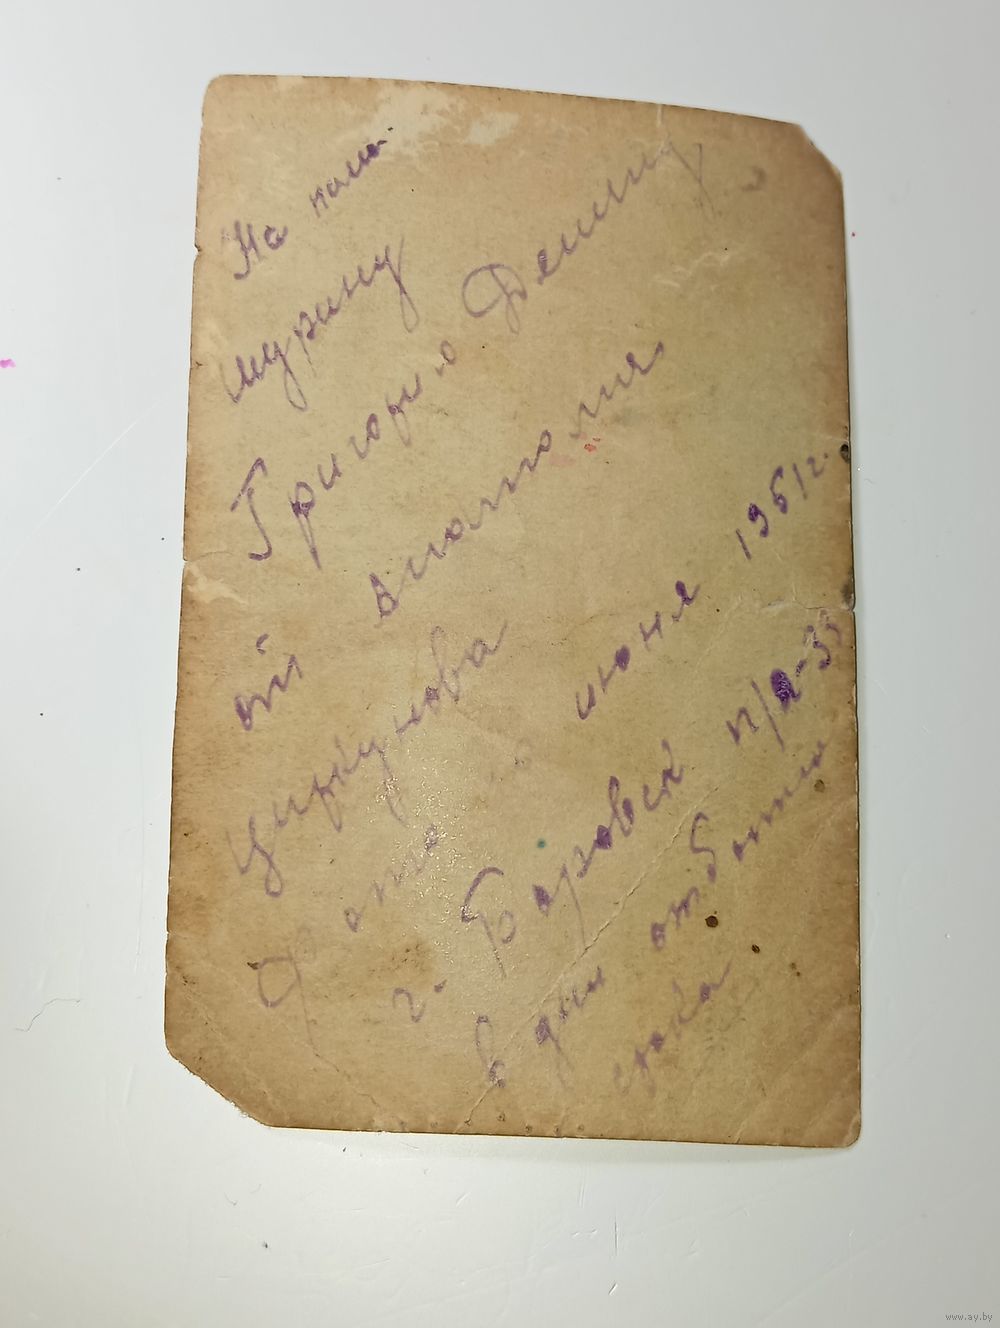 На пам.
шурину
Григорию Демину
от Анатолия
Цинкунова
Фото июня 1951г.
г. Боровск п/я-33
в дни отбытия
срока
www.ay.by